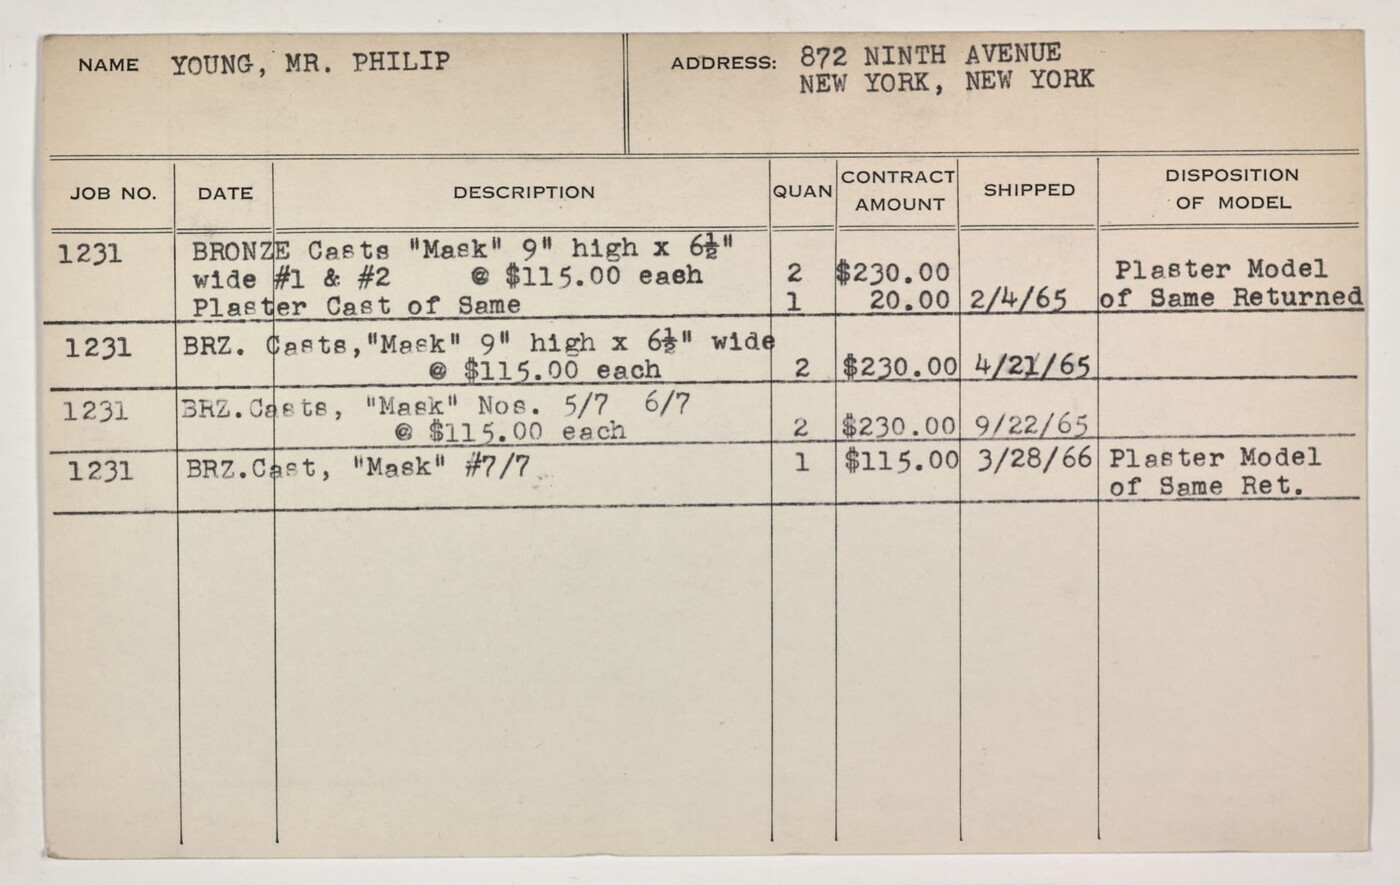 NAME YOUNG, MR. PHILIP
ADDRESS: 872 NINTH AVENUE
NEW YORK, NEW YORK
JOB NO. DATE DESCRIPTION QUAN CONTRACT AMOUNT SHIPPED DISPOSITION OF MODEL
1231 BRONZE Casts "Mask" 9" high x 6½"
wide #1 & #2 @ $115.00 each 2 $230.00 Plaster Model
Plaster Cast of Same 1 20.00 2/4/65 of Same Returned
1231 BRZ. Casts, "Mask" 9" high x 6½" wide
@ $115.00 each 2 $230.00 4/21/65
1231 BRZ.Casts, "Mask" Nos. 5/7 6/7
@ $115.00 each 2 $230.00 9/22/65
1231 BRZ.Cast, "Mask" #7/7 1 $115.00 3/28/66 Plaster Model
of Same Ret.